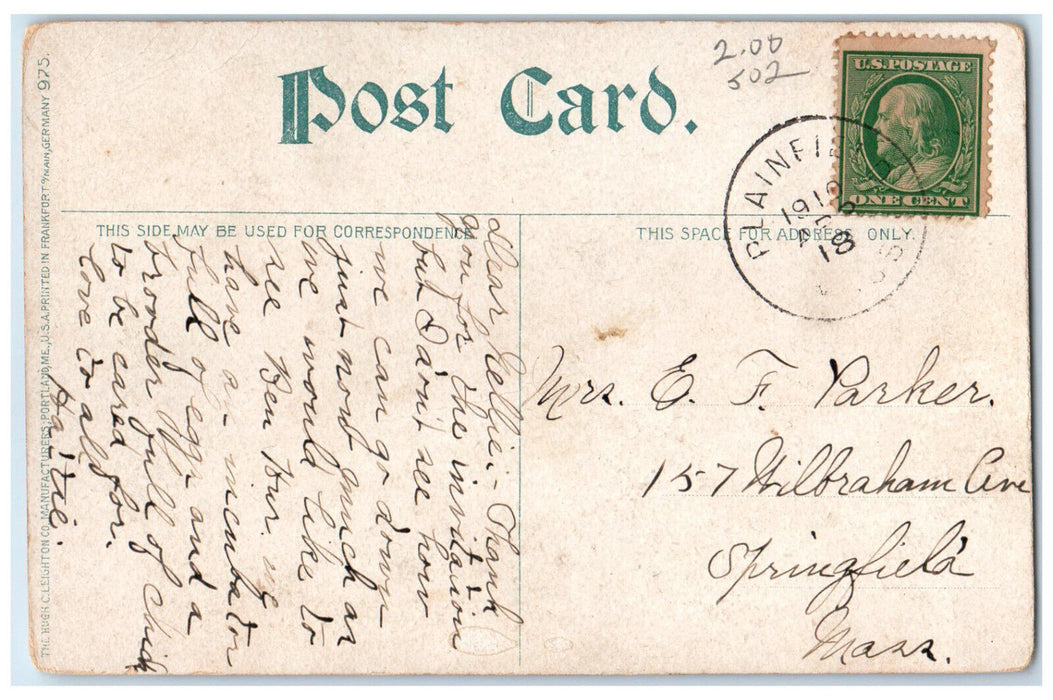 Post Card.
2.00
502
U.S. POSTAGE
ONE CENT
PLAINFIELD
1910
18
MASS
THIS SIDE MAY BE USED FOR CORRESPONDENCE
THIS SPACE FOR ADDRESS ONLY.
THE HUGH C. LEIGHTON CO. MANUFACTURERS, PORTLAND, ME., U.S.A. PRINTED IN FRANKFORT o/MAIN, GERMANY 975.
Dear Nellie:- Thank
you for the invitation
but I don't see how
we can go down
just now much as
we would like to
see Ben Hur. We
have an incubator
full of eggs and a
brooder full of chick
to be cared for.
Love to all
Mrs. E. F. Parker.
157 Wilbraham Ave
Springfield
Mass.